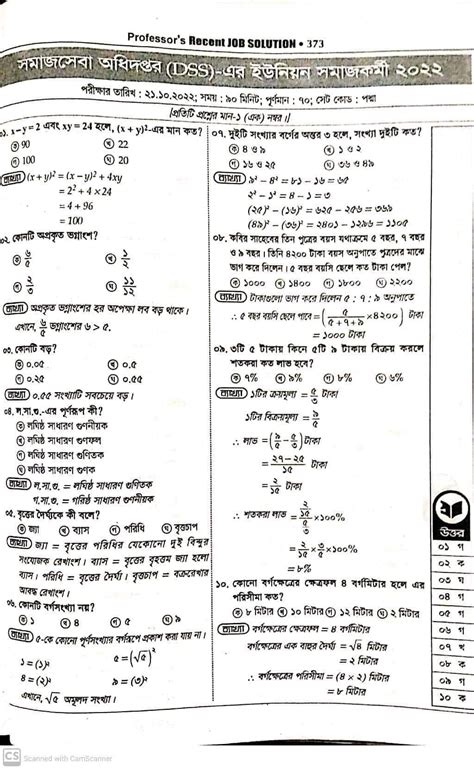 Professor's Recent JOB SOLUTION • 373
সমাজসেবা অধিদপ্তর (DSS)-এর ইউনিয়ন সমাজকর্মী ২০২২
পরীক্ষার তারিখ : ২১.১০.২০২২; সময় : ৯০ মিনিট; পূর্ণমান : ৭০; সেট কোড : পদ্মা
[প্রতিটি প্রশ্নের মান-১ (এক) নম্বর।]
০১. x-y = 2 এবং xy = 24 হলে, (x + y)²-এর মান কত?
ক 90 খ 22
গ 100 ঘ 20
ব্যাখ্যা (x + y)² = (x − y)² + 4xy
= 2² + 4 × 24
= 4 + 96
= 100
০২. কোনটি অপ্রকৃত ভগ্নাংশ?
ক ৬/৫ খ ১/২
গ ২/৫ ঘ ১১/১২
ব্যাখ্যা অপ্রকৃত ভগ্নাংশের হর অপেক্ষা লব বড় থাকে।
এখানে, ৬/৫ ভগ্নাংশের ৬ > ৫.
০৩. কোনটি বড়?
ক ০.০৫ খ ০.৫
গ ০.২৫ ঘ ০.৫৫
ব্যাখ্যা ০.৫৫ সংখ্যাটি সবচেয়ে বড়।
০৪. ল.সা.গু.-এর পূর্ণরূপ কী?
ক লঘিষ্ঠ সাধারণ গুণনীয়ক
খ লঘিষ্ঠ সাধারণ গুণফল
গ লঘিষ্ঠ সাধারণ গুণিতক
ঘ লঘিষ্ঠ সাধারণ গুণক
ব্যাখ্যা ল.সা.গু. = লঘিষ্ঠ সাধারণ গুণিতক
গ.সা.গু. = গরিষ্ঠ সাধারণ গুণনীয়ক
০৫. বৃত্তের দৈর্ঘ্যকে কী বলে?
ক জ্যা খ ব্যাস গ পরিধি ঘ বৃত্তচাপ
ব্যাখ্যা জ্যা = বৃত্তের পরিধির যেকোনো দুই বিন্দুর
সংযোজক রেখাংশ। ব্যাস = বৃত্তের বৃহত্তম জ্যা হলো
ব্যাস। পরিধি = বৃত্তের দৈর্ঘ্য। বৃত্তচাপ = বক্ররেখার
আবদ্ধ রেখাংশ।
০৬. কোনটি বর্গসংখ্যা নয়?
ক ১ খ ৪ গ ৫ ঘ ৯
ব্যাখ্যা ৫-কে কোনো পূর্ণসংখ্যার বর্গরূপে প্রকাশ করা যায় না।
১ = (১)² ৫ = (√৫)²
৪ = (২)² ৯ = (৩)²
এখানে, √৫ অমূলদ সংখ্যা।
০৭. দুইটি সংখ্যার বর্গের অন্তর ৩ হলে, সংখ্যা দুইটি কত?
ক ৪ ও ৯ খ ১ ও ২
গ ১৬ ও ২৫ ঘ ৩৬ ও ৪৯
ব্যাখ্যা ৯² − ৪² = ৮১ − ১৬ = ৬৫
২² − ১² = ৪ − ১ = ৩
(২৫)² − (১৬)² = ৬২৫ − ২৫৬ = ৩৬৯
(৪৯)² − (৩৬)² = ২৪০১ − ১২৯৬ = ১১০৫
০৮. কবির সাহেবের তিন পুত্রের বয়স যথাক্রমে ৫ বছর, ৭ বছর
ও ৯ বছর। তিনি ৪২০০ টাকা বয়স অনুপাতে পুত্রদের মাঝে
ভাগ করে দিলেন। ৫ বছর বয়সি ছেলে কত টাকা পেল?
ক ১০০০ খ ১৪০০ গ ১৮০০ ঘ ২২০০
ব্যাখ্যা টাকাগুলো ভাগ করে দিলেন ৫ : ৭ : ৯ অনুপাতে
∴ ৫ বছর বয়সি ছেলে পাবে = (৫/৫+৭+৯ × ৪২০০) টাকা
= ১০০০ টাকা
০৯. ৩টি ৫ টাকায় কিনে ৫টি ৯ টাকায় বিক্রয় করলে
শতকরা কত লাভ হবে?
ক ৭% খ ৯% গ ৮% ঘ ৬%
ব্যাখ্যা ১টির ক্রয়মূল্য = ৫/৩
১টির বিক্রয়মূল্য = ৯/৫
∴ লাভ = (৯/৫ − ৫/৩) টাকা
= ২৭ − ২৫/১৫ টাকা
= ২/১৫ টাকা
∴ শতকরা লাভ = ২/১৫/৫/৩ × ১০০%
= ২/১৫ × ৩/৫ × ১০০%
= ৮%
১০. কোনো বর্গক্ষেত্রের ক্ষেত্রফল ৪ বর্গমিটার হলে এর
পরিসীমা কত?
ক ৮ মিটার খ ১০ মিটার গ ১২ মিটার ঘ ২ মিটার
ব্যাখ্যা বর্গক্ষেত্রের ক্ষেত্রফল = ৪ বর্গমিটার
বর্গক্ষেত্রের এক বাহুর দৈর্ঘ্য = √৪ মিটার
= ২ মিটার
∴ বর্গক্ষেত্রের পরিসীমা = (৪ × ২) মিটার
= ৮ মিটার
উত্তর
০১ গ
০২ ক
০৩ ঘ
০৪ গ
০৫ গ
০৬ গ
০৭ খ
০৮ ক
০৯ গ
১০ ক
CS Scanned with CamScanner